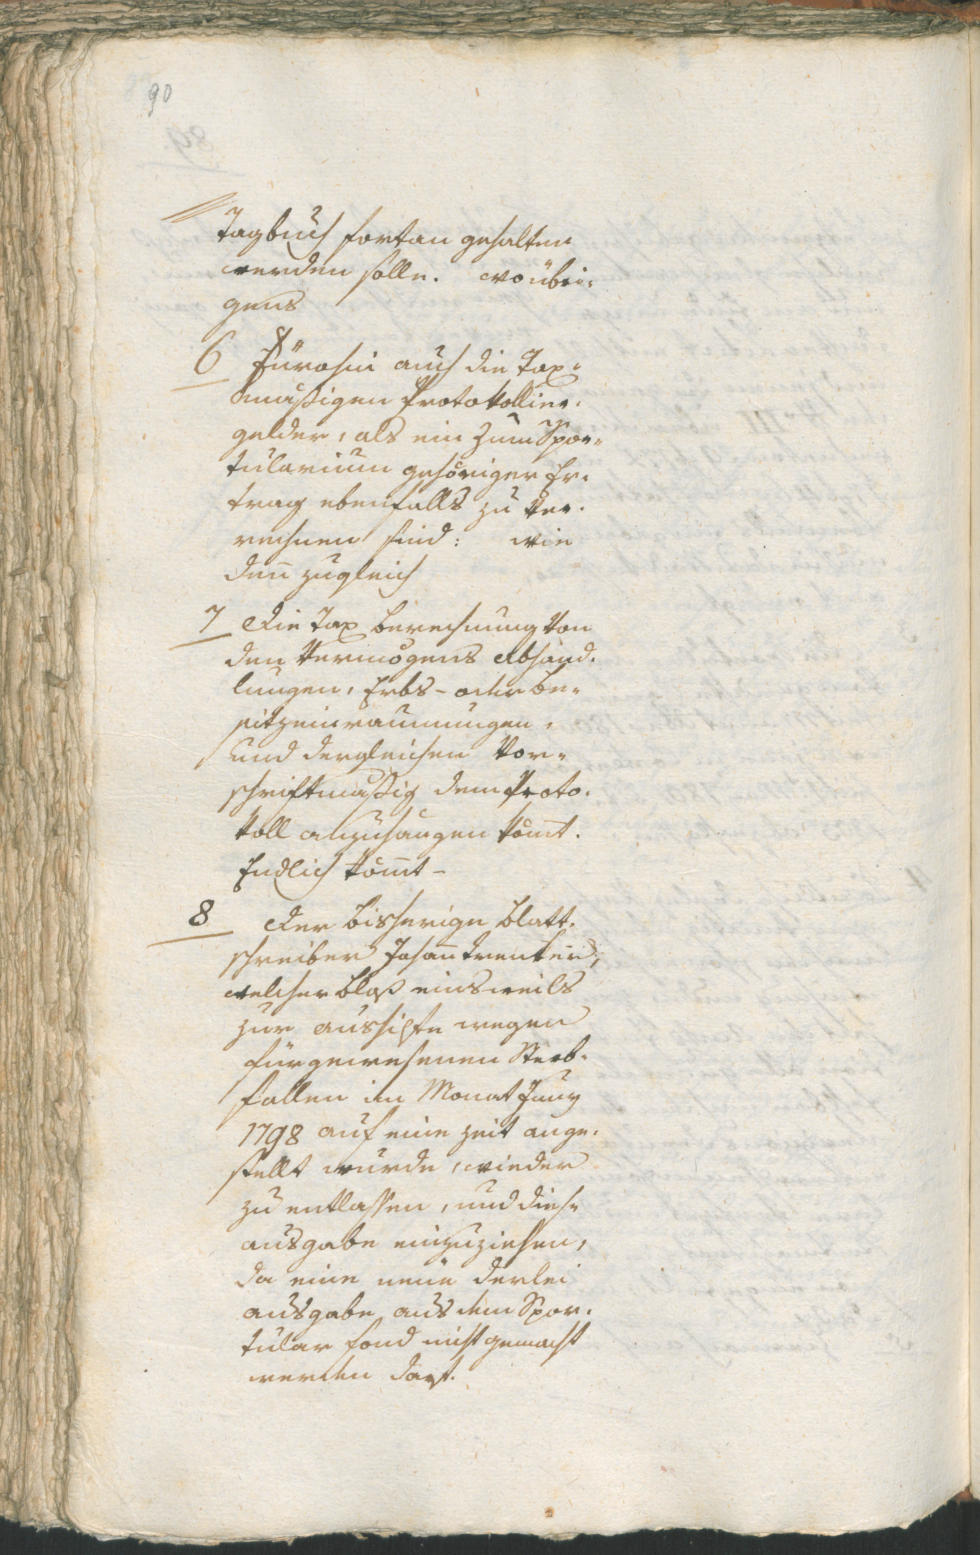 90
Tagbuch fortan gehalten
werden solle. wo übri-
gens
6 Fürohin auch die Tax-
mäßigen Protokollier-
gelder, als ein zum Spor-
tularium gehöriger Er-
trag ebenfalls zu ver-
rechnen sind: wie
den̅ zugleich
7 Die Tax berechnung von
den Vermögens Abhand-
lungen, Erbs- oder be-
sitzeinraumungen,
und dergleichen vor-
schriftmäßig dem Proto-
koll anzuhangen köm̅t.
Endlich köm̅t -
8 Der bisherige Blatt-
schreiber Johan̅
welcher bloß einsweils
zur aushilfe wegen
fürgewesenen Sterb-
fällen im Monat Juny
1798 auf eine zeit ange-
stellt wurde, wieder
zu entlassen, und diese
ausgabe einzuziehen,
da eine neüe derlei
ausgabe aus dem Spor-
tular fond nicht gemacht
werden darf.